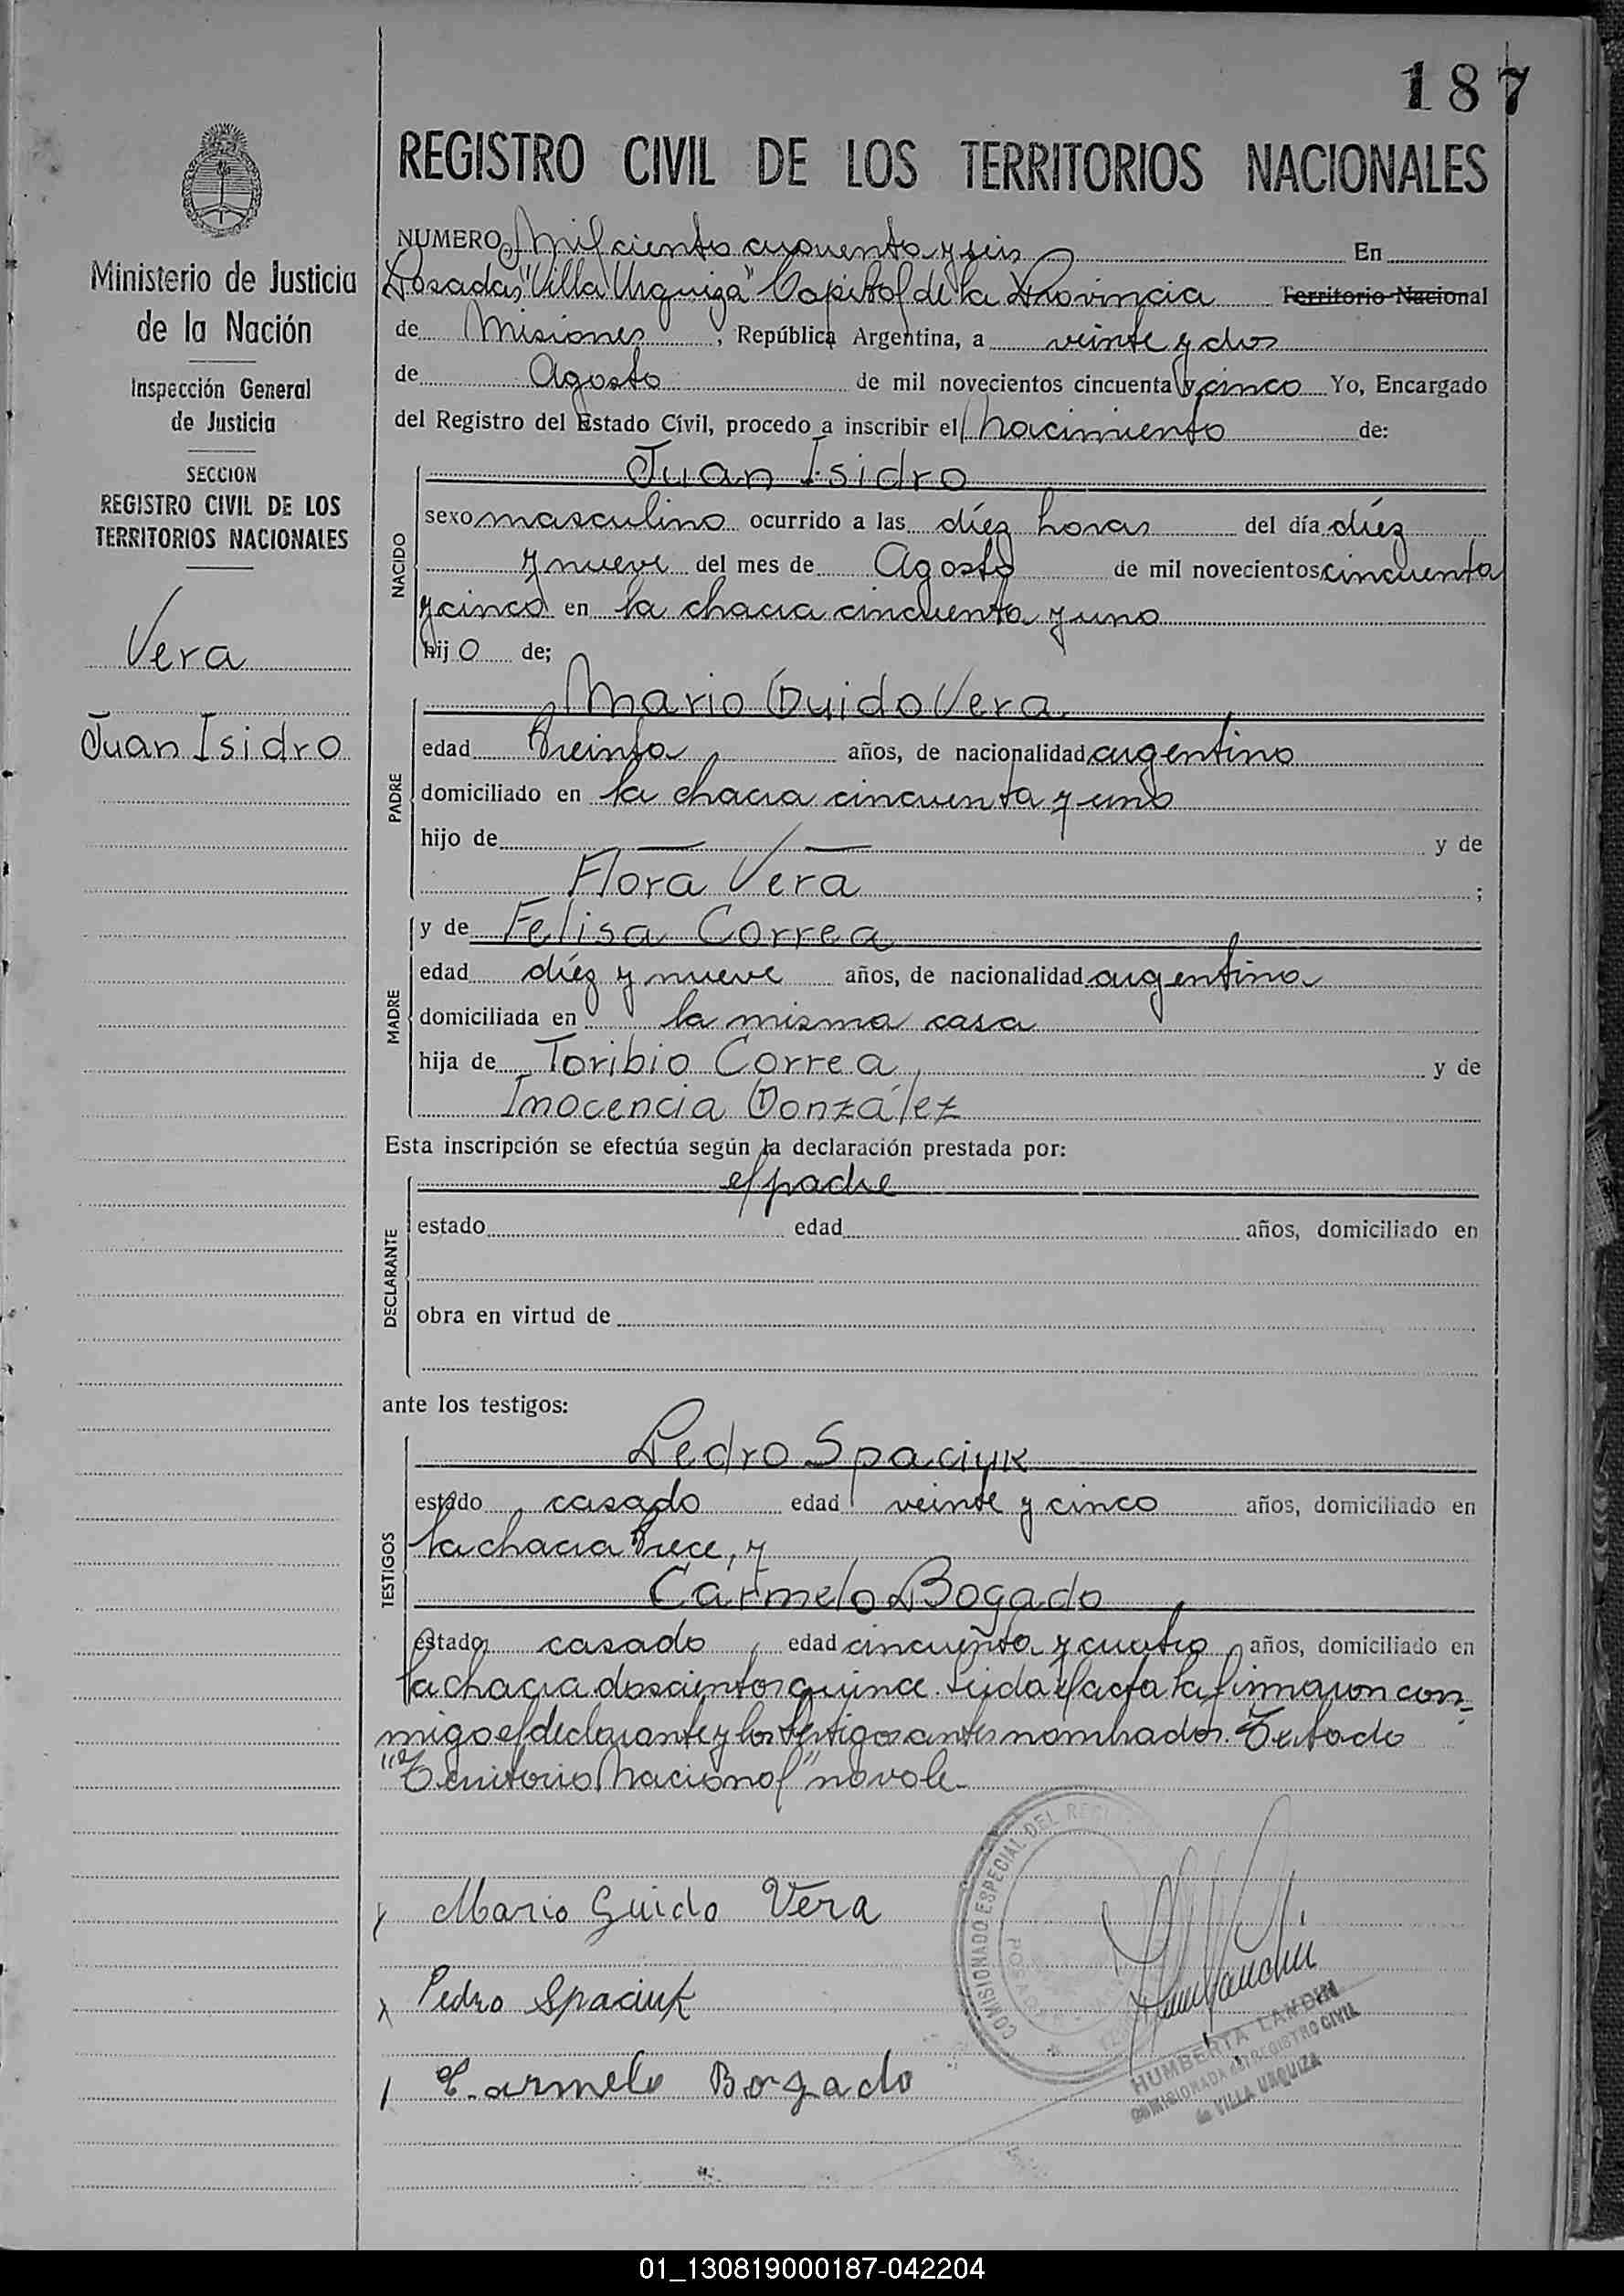 187
REGISTRO CIVIL DE LOS TERRITORIOS NACIONALES
Ministerio de Justicia
de la Nación
Inspección General
de Justicia
SECCION
REGISTRO CIVIL DE LOS
TERRITORIOS NACIONALES
Vera
Juan Isidro
NUMERO Mil ciento cuarenta y seis En
Posadas "Villa Urquiza" Capital de la Provincia Territorio Nacional
de Misiones, República Argentina, a veinte y dos
de Agosto de mil novecientos cincuenta y cinco Yo, Encargado
del Registro del Estado Civil, procedo a inscribir el Nacimiento de:
NACIDO
Juan Isidro
sexo masculino ocurrido a las diéz horas del día diéz
y nueve del mes de Agosto de mil novecientos cincuenta
y cinco en la chacra cincuenta y uno
hijo de;
PADRE
Mario Guido Vera
edad treinta años, de nacionalidad argentino
domiciliado en la chacra cincuenta y uno
hijo de — — y de
Flora Vera ;
MADRE
y de Felisa Correa
edad diéz y nueve años, de nacionalidad argentina
domiciliada en la misma casa
hija de Toribio Correa y de
Inocencia González
Esta inscripción se efectúa según la declaración prestada por:
DECLARANTE
el padre
estado edad años, domiciliado en
obra en virtud de
ante los testigos:
TESTIGOS
Pedro Spaciuk
estado casado edad veinte y cinco años, domiciliado en
la chacra trece, y
Carmelo Bogado
estado casado, edad cincuenta y cuatro años, domiciliado en
la chacra doscientos quince. Leida el acta la firmaron con-
migo el declarante y los testigos antes nombrados. Testado
"Territorio Nacional" no vale.
Mario Guido Vera
Pedro Spaciuk
Carmelo Bogado
COMISIONADO ESPECIAL DEL
HUMBERTA LANDIN
COMISIONADA del REGISTRO CIVIL
de VILLA URQUIZA
01_130819000187-042204